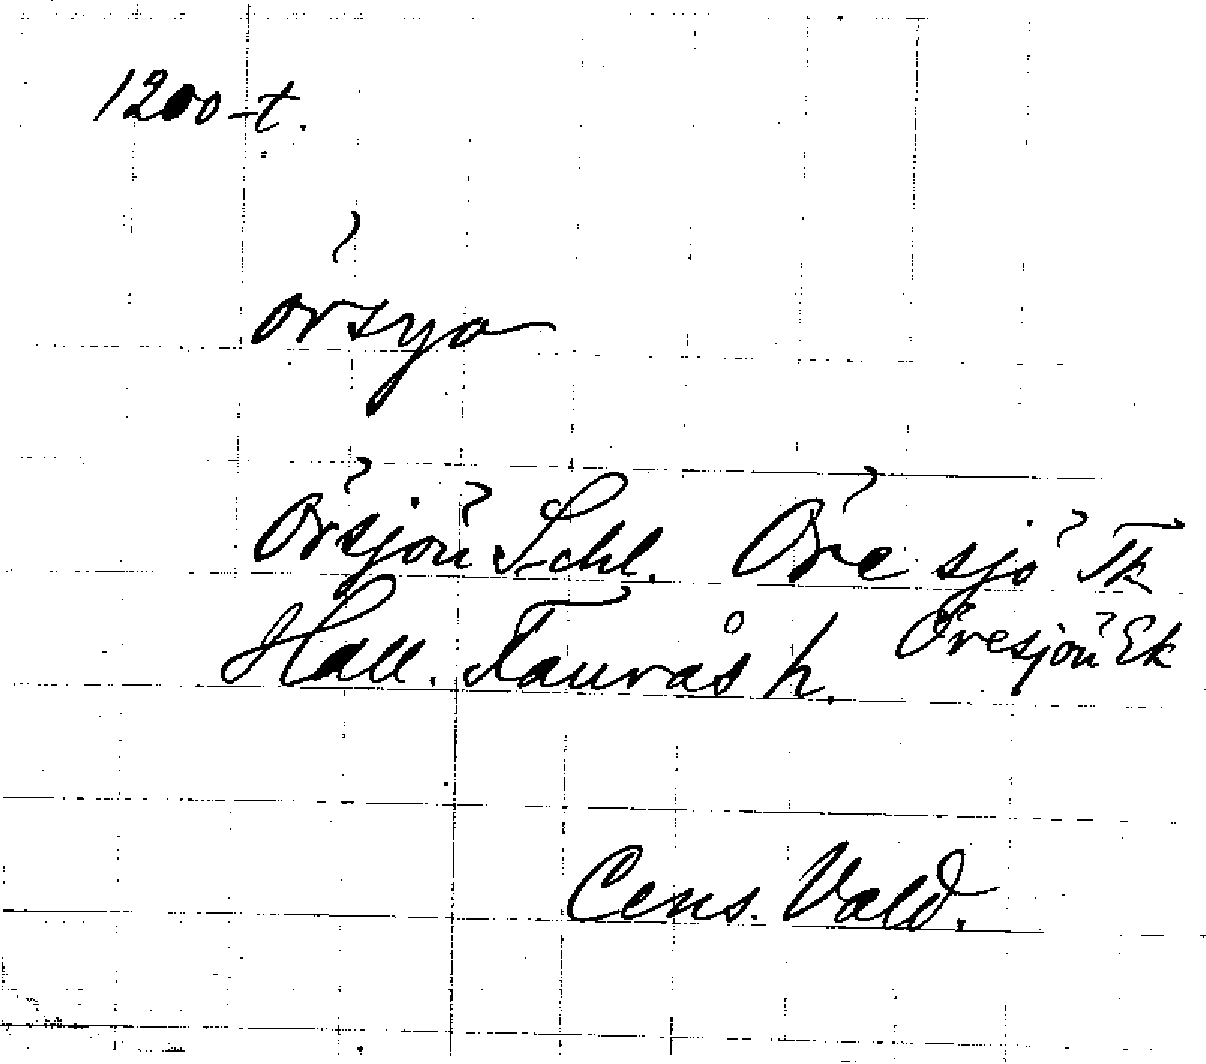 1200-t.
örsyo
Örsjön Schl. Öresjö Tk
Hall. Faurås h. Öresjön Ek
Cens. Vald.